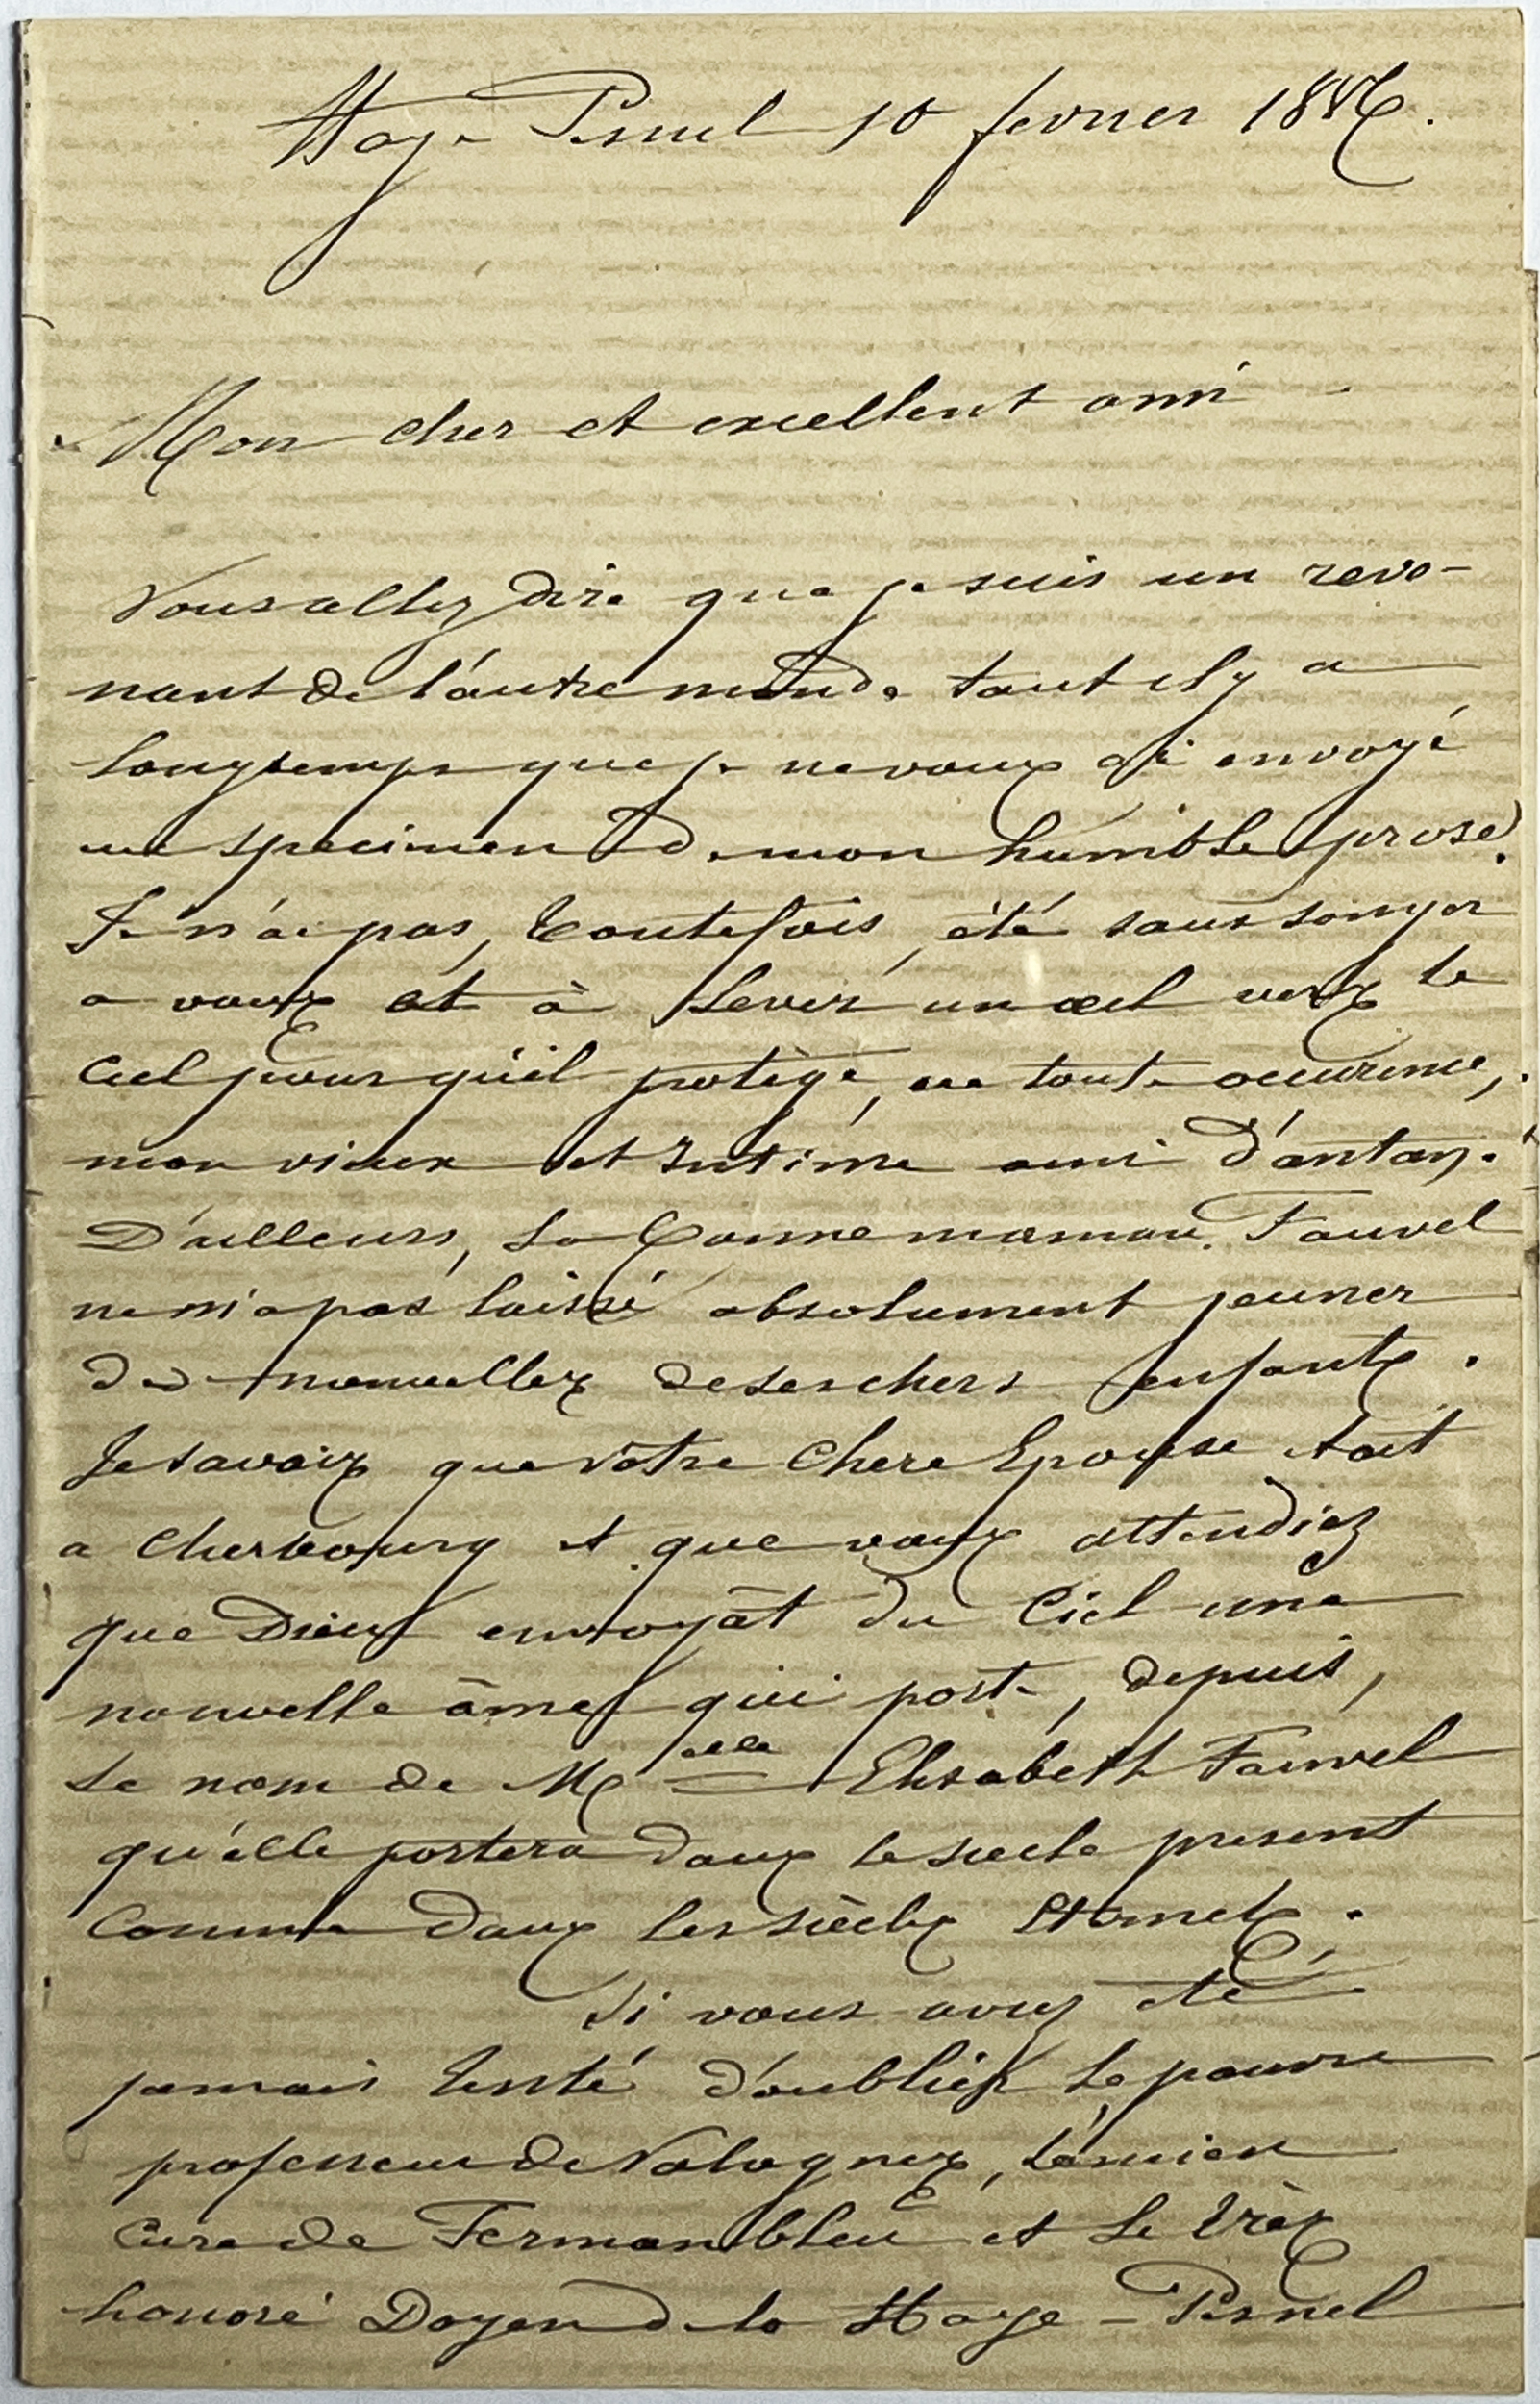 Haye Pesnel 10 fevrier 188
Mon cher et excellent ami
Vous allez dire que je suis un reve-
nant de l'autre monde tant il y a
longtemps que je ne vous ai envoyé
un specimen de mon humble prose.
Je n'ai pas, toutefois, été sans songer
a vous et à lever un œil vers le
Ciel pour qu'il protège, en toute occurence,
mon vieux et intime ami d'antan.
D'ailleurs, la bonne maman Fauvel
ne m'a pas laissé absolument jeuner
de nouvelles de ses chers enfants.
Je savais que votre chere Epouse etait
a Cherbourg et que vous attendiez
que Dieu envoyât du Ciel une
nouvelle âme qui porte, depuis,
le nom de Melle Elisabeth Fauvel
qu'elle portera dans le siecle present
comme dans les siècles Eternels.
Si vous avez été
jamais tenté d'oublier le pauvre
professeur de Valognes, l'ancien
cure de Fermanbleu et le très
honoré Doyen de la Haye-Pesnel